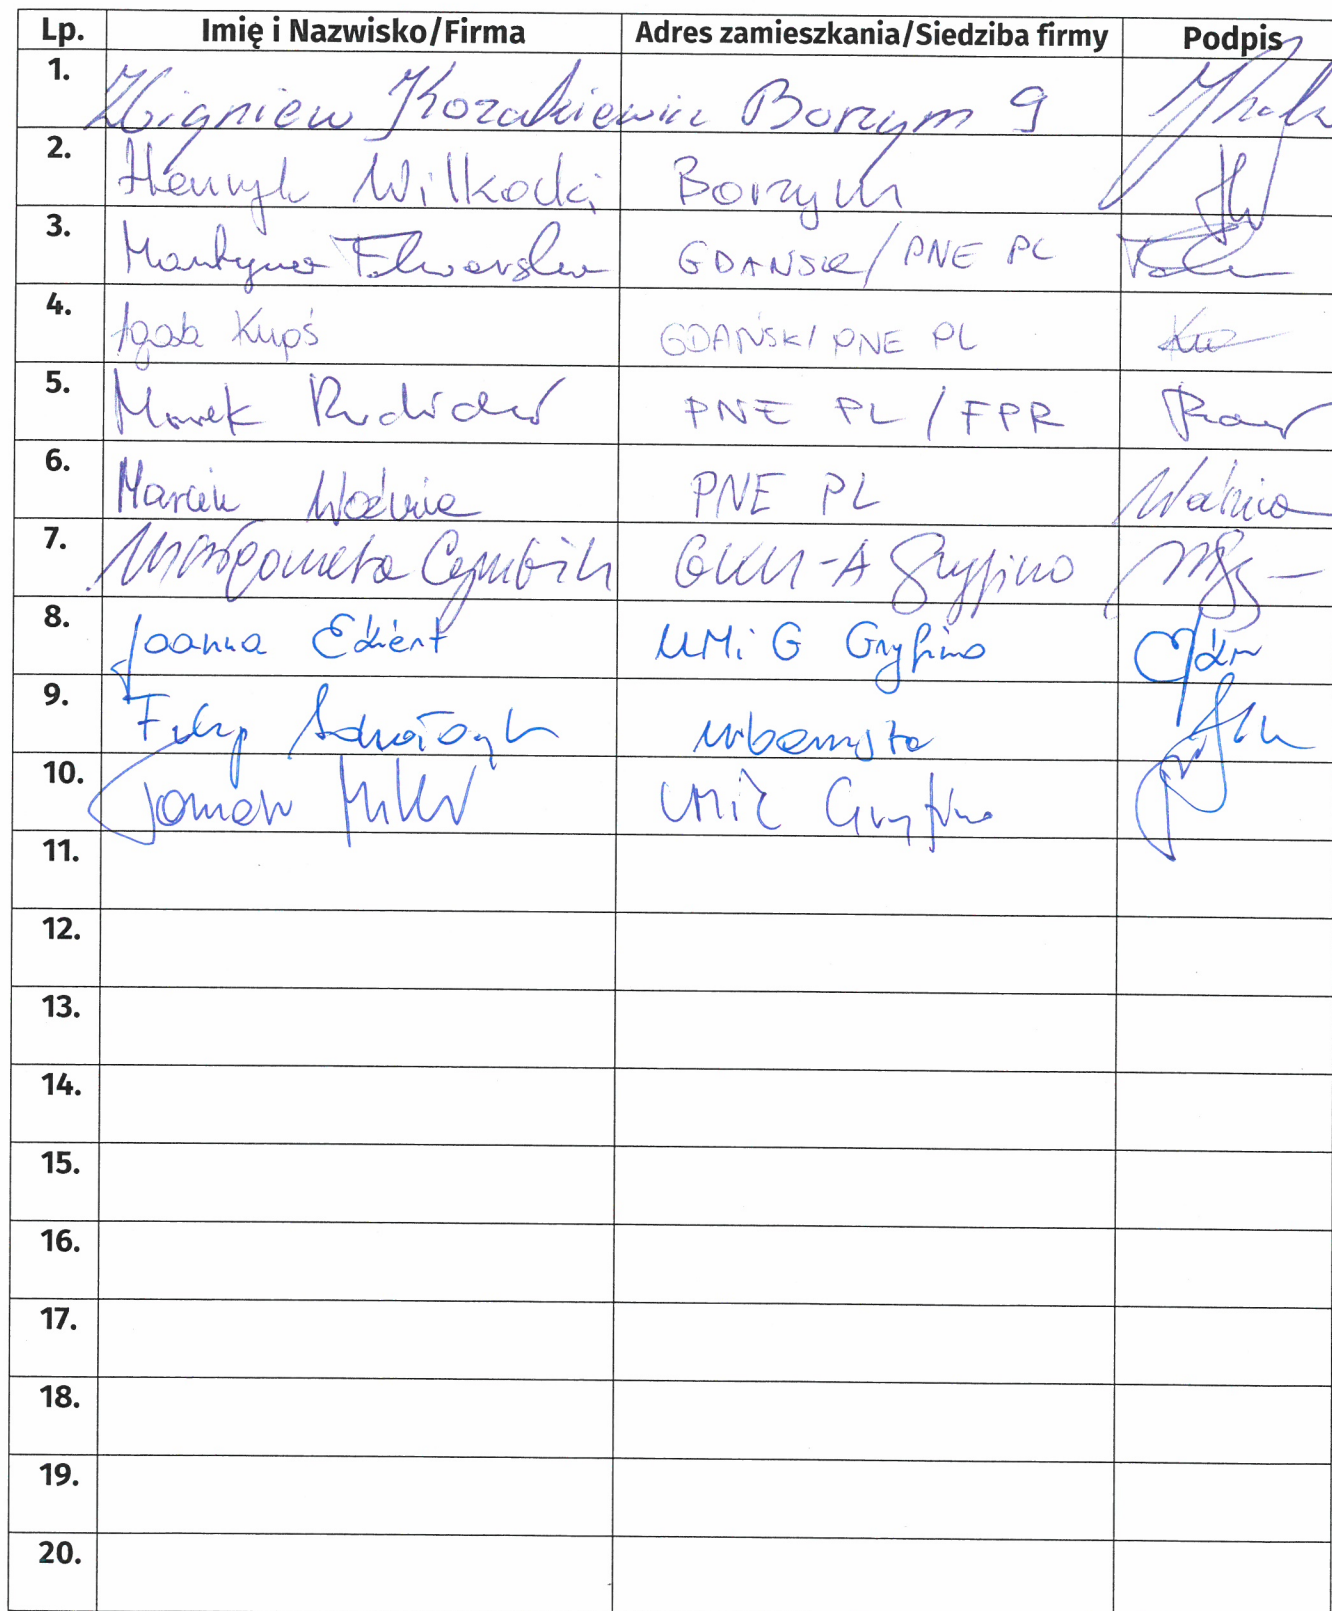 Lp. Imię i Nazwisko/Firma Adres zamieszkania/Siedziba firmy Podpis
1. Zbigniew Kozakiewicz Borzym 9
2. Henryk Wilkocki Borzym
3. Martyna GDAŃSK/PNE PL
4. Agata Kupś GDAŃSK/PNE PL
5. Marek PNE PL/FPR
6. Marcin Woźnica PNE PL Woźnica
7. Małgorzata Gryfino
8. Joanna UMiG Gryfino
9. Filip urbanista
10. Tomasz Gryfino
11.
12.
13.
14.
15.
16.
17.
18.
19.
20.